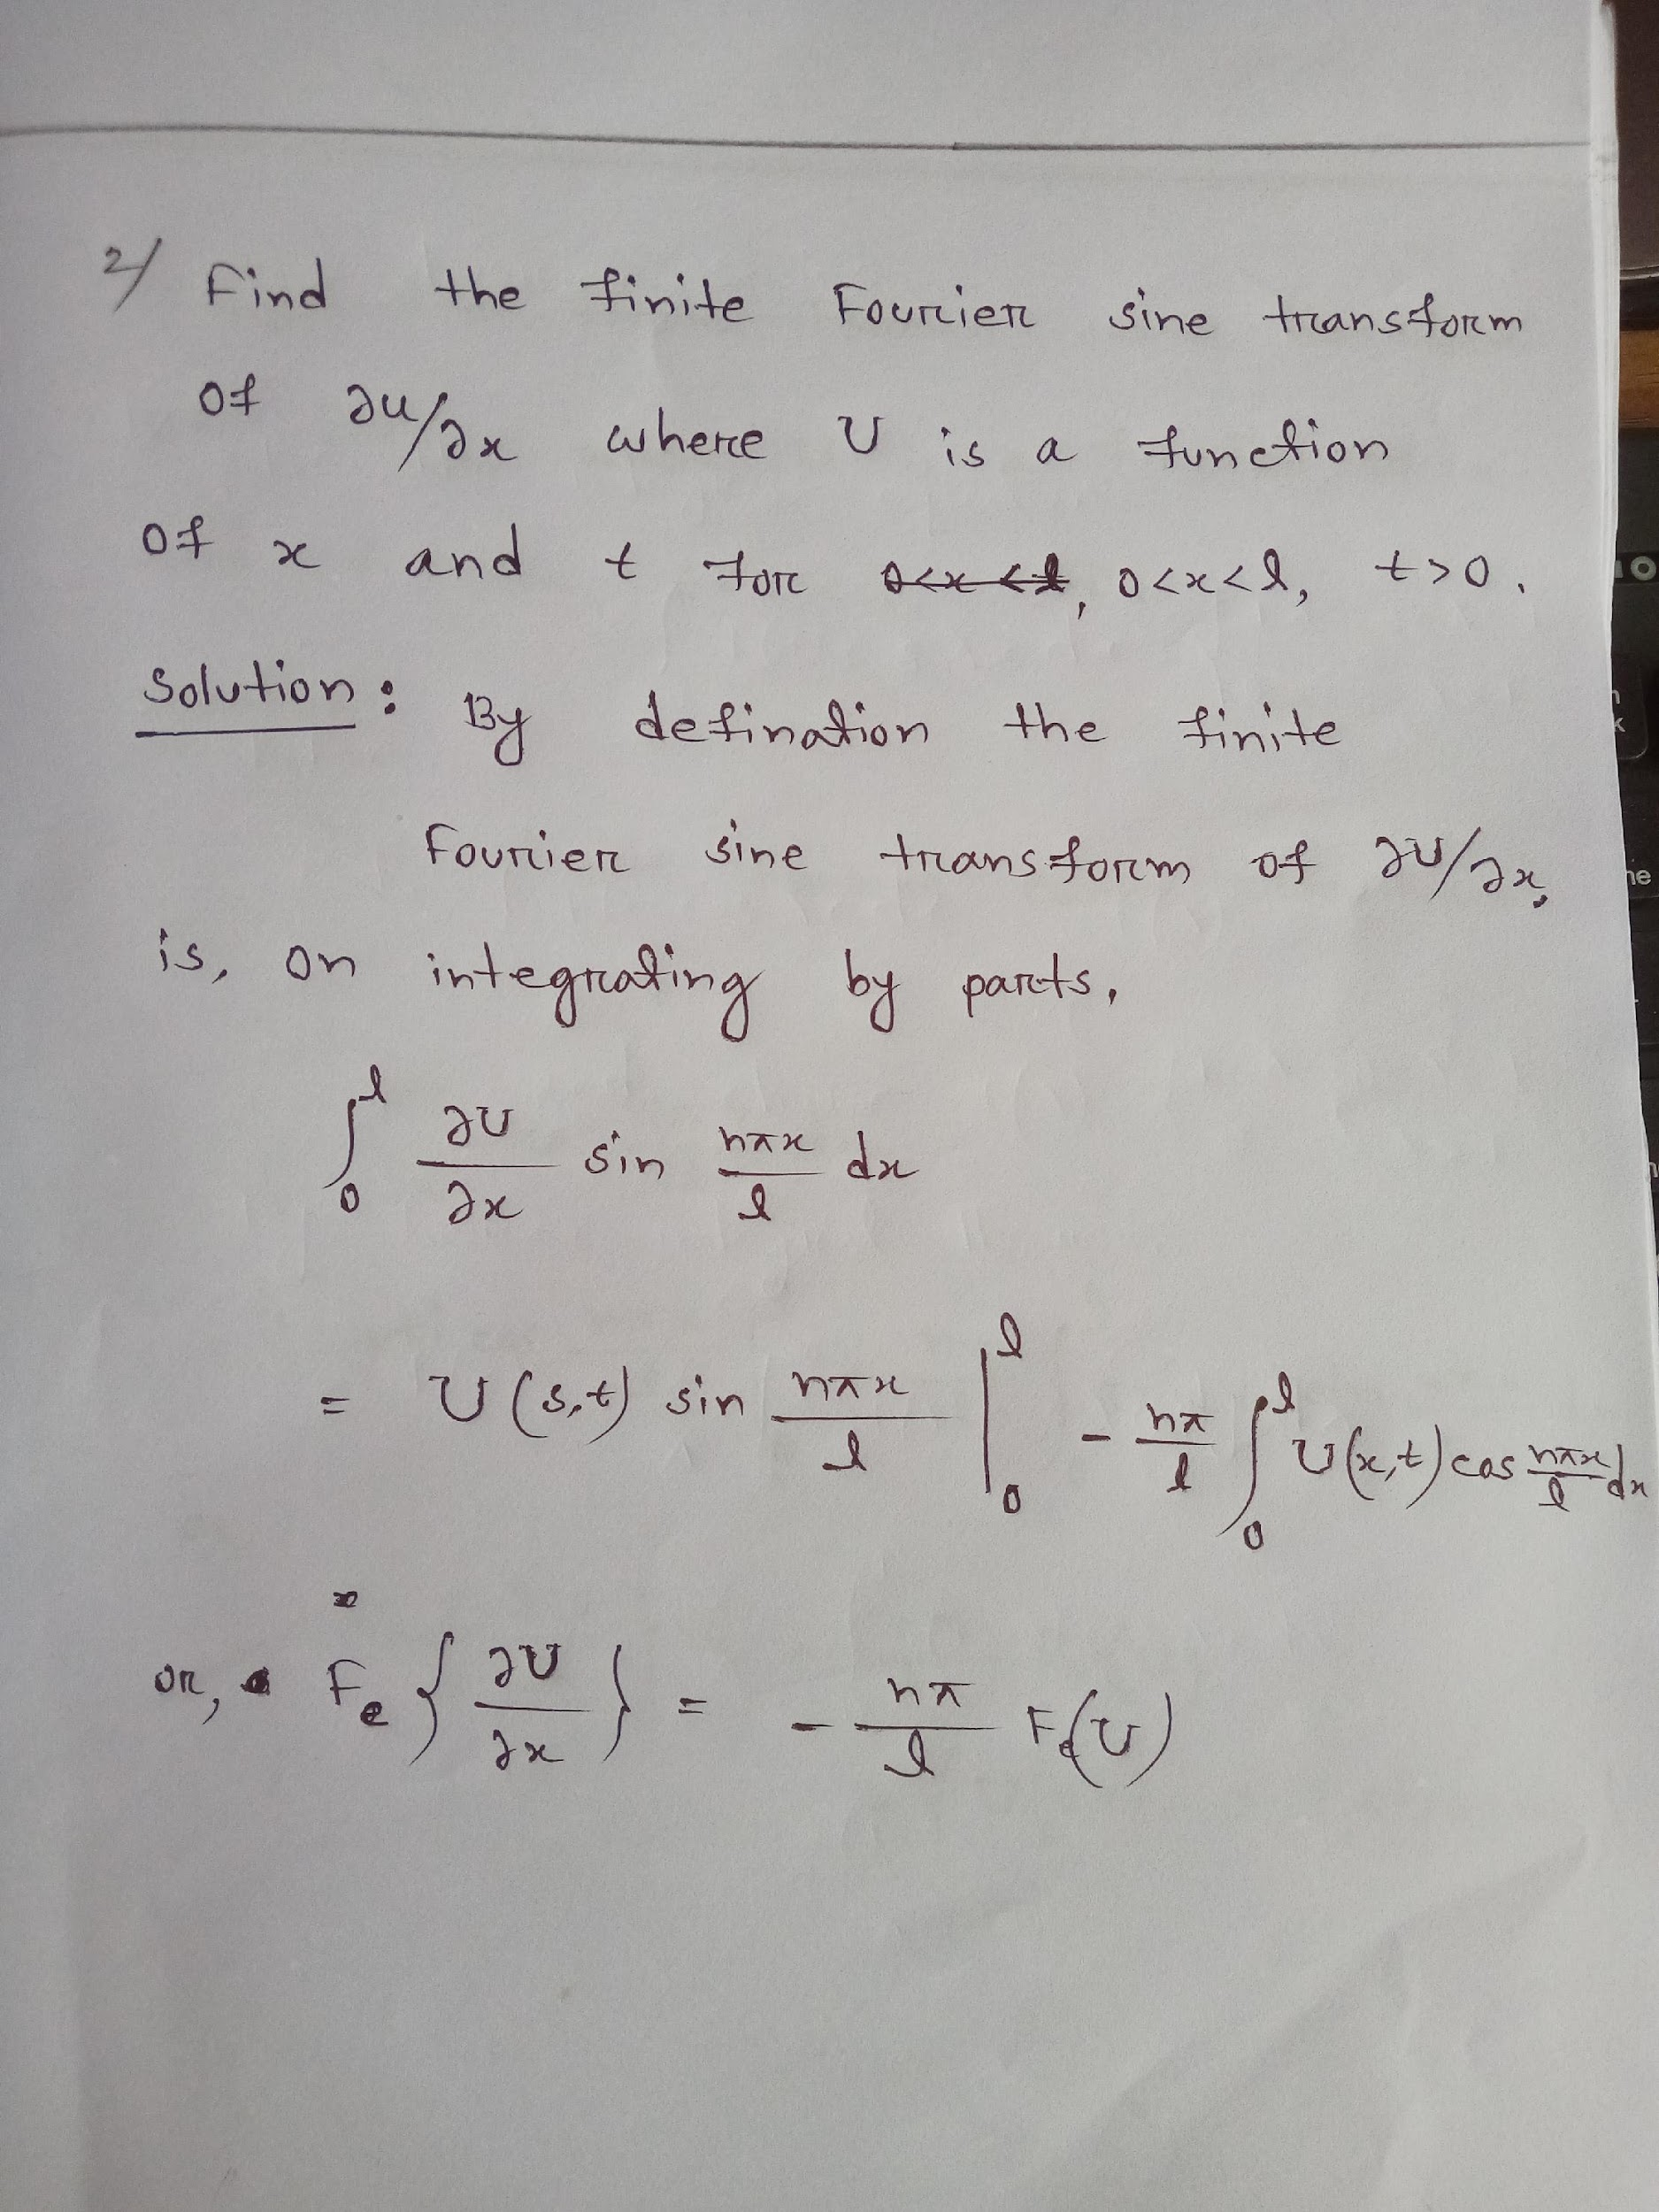 2/ Find the finite Fourier sine transform
of ∂u/∂x where U is a function
of x and t for 0<x<l, 0<x<l, t>0.
Solution: By defination the finite
Fourier sine transform of ∂U/∂x,
is, on integrating by parts,
∫₀ˡ ∂U/∂x sin nπx/l dx
= U(s,t) sin nπx/l |₀ˡ - nπ/l ∫₀ˡ U(x,t) cos nπx/l dx
or, Fe {∂U/∂x} = - nπ/l Fc(U)